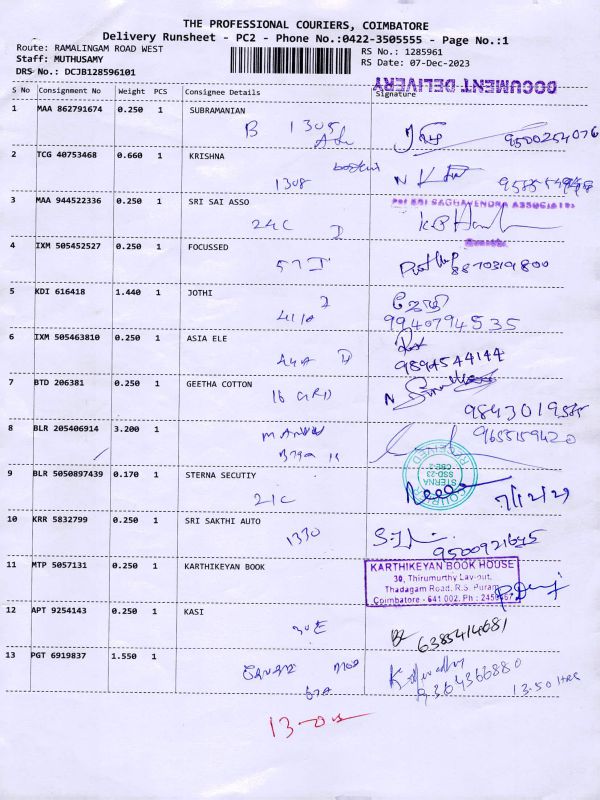 THE PROFESSIONAL COURIERS, COIMBATORE
Delivery Runsheet - PC2 - Phone No.:0422-3505555 - Page No.:1
Route: RAMALINGAM ROAD WEST
RS No.: 1285961
Staff: MUTHUSAMY
RS Date: 07-Dec-2023
DRS No.: DCJB128596101
DOCUMENT DELIVERY
S No Consignment No Weight PCS Consignee Details Signature
1 MAA 862791674 0.250 1 SUBRAMANIAN
B 1305
9500254076
2 TCG 40753468 0.660 1 KRISHNA
1308
3 MAA 944522336 0.250 1 SRI SAI ASSO
For SRI RAGHAVENDRA ASSOCIATES
24C
4 IXM 505452527 0.250 1 FOCUSSED
57I
8870319800
5 KDI 616418 1.440 1 JOTHI
ஜோதி
411A
9940794535
6 IXM 505463810 0.250 1 ASIA ELE
9894544144
7 BTD 206381 0.250 1 GEETHA COTTON
16 GRD
N
9843019585
8 BLR 205406914 3.200 1
9655159420
9 BLR 5050897439 0.170 1 STERNA SECUTIY
RECEIVED
STERNA
SSD-23
CBE-2
COURIER
21C
7/12/23
10 KRR 5832799 0.250 1 SRI SAKTHI AUTO
1330
9500921645
11 MTP 5057131 0.250 1 KARTHIKEYAN BOOK
KARTHIKEYAN BOOK HOUSE
30, Thirumurthy Lay-out,
Thadagam Road, R.S. Puram,
Coimbatore - 641 002. Ph : 2456
12 APT 9254143 0.250 1 KASI
30E
6385414681
13 PGT 6919837 1.550 1
9364366880
13.50 HRS